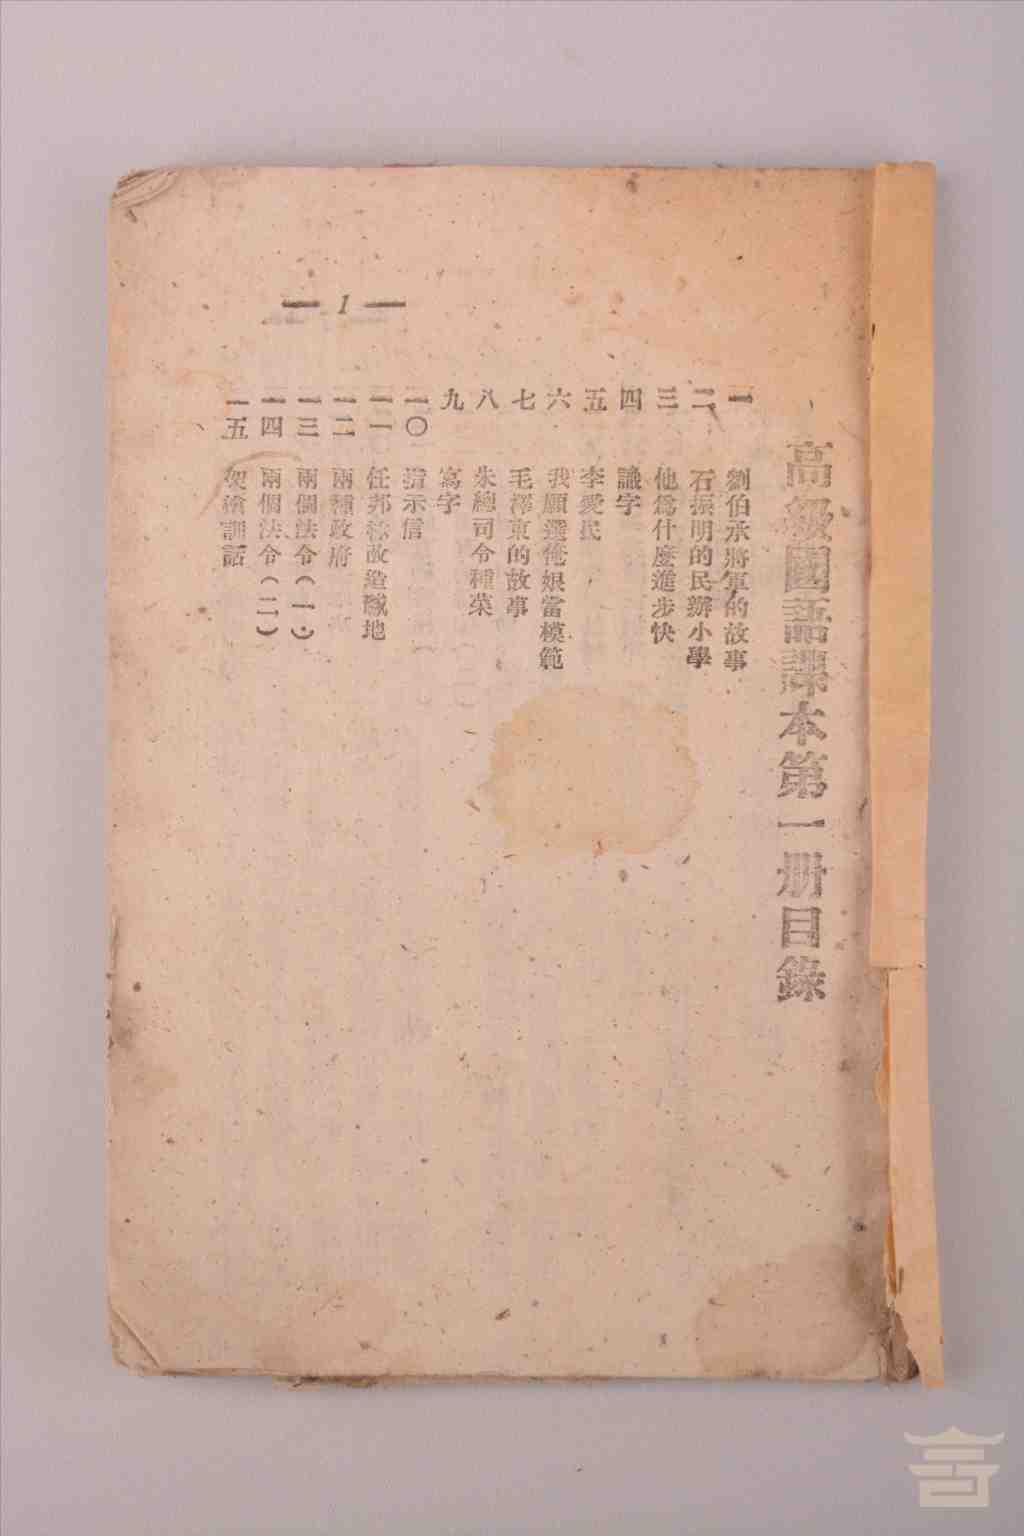 高級國語課本第一册目錄
一 劉伯承將軍的故事
二 石振明的民辦小學
三 他爲什麼進步快
四 識字
五 李愛民
六 我願選俺娘當模範
七 毛澤東的故事
八 朱總司令種菜
九 寫字
一〇 指示信
一一 任邦 改造 地
一二 兩種政府
一三 兩個法令(一)
一四 兩個法令(二)
一五 訓話
— 1 —